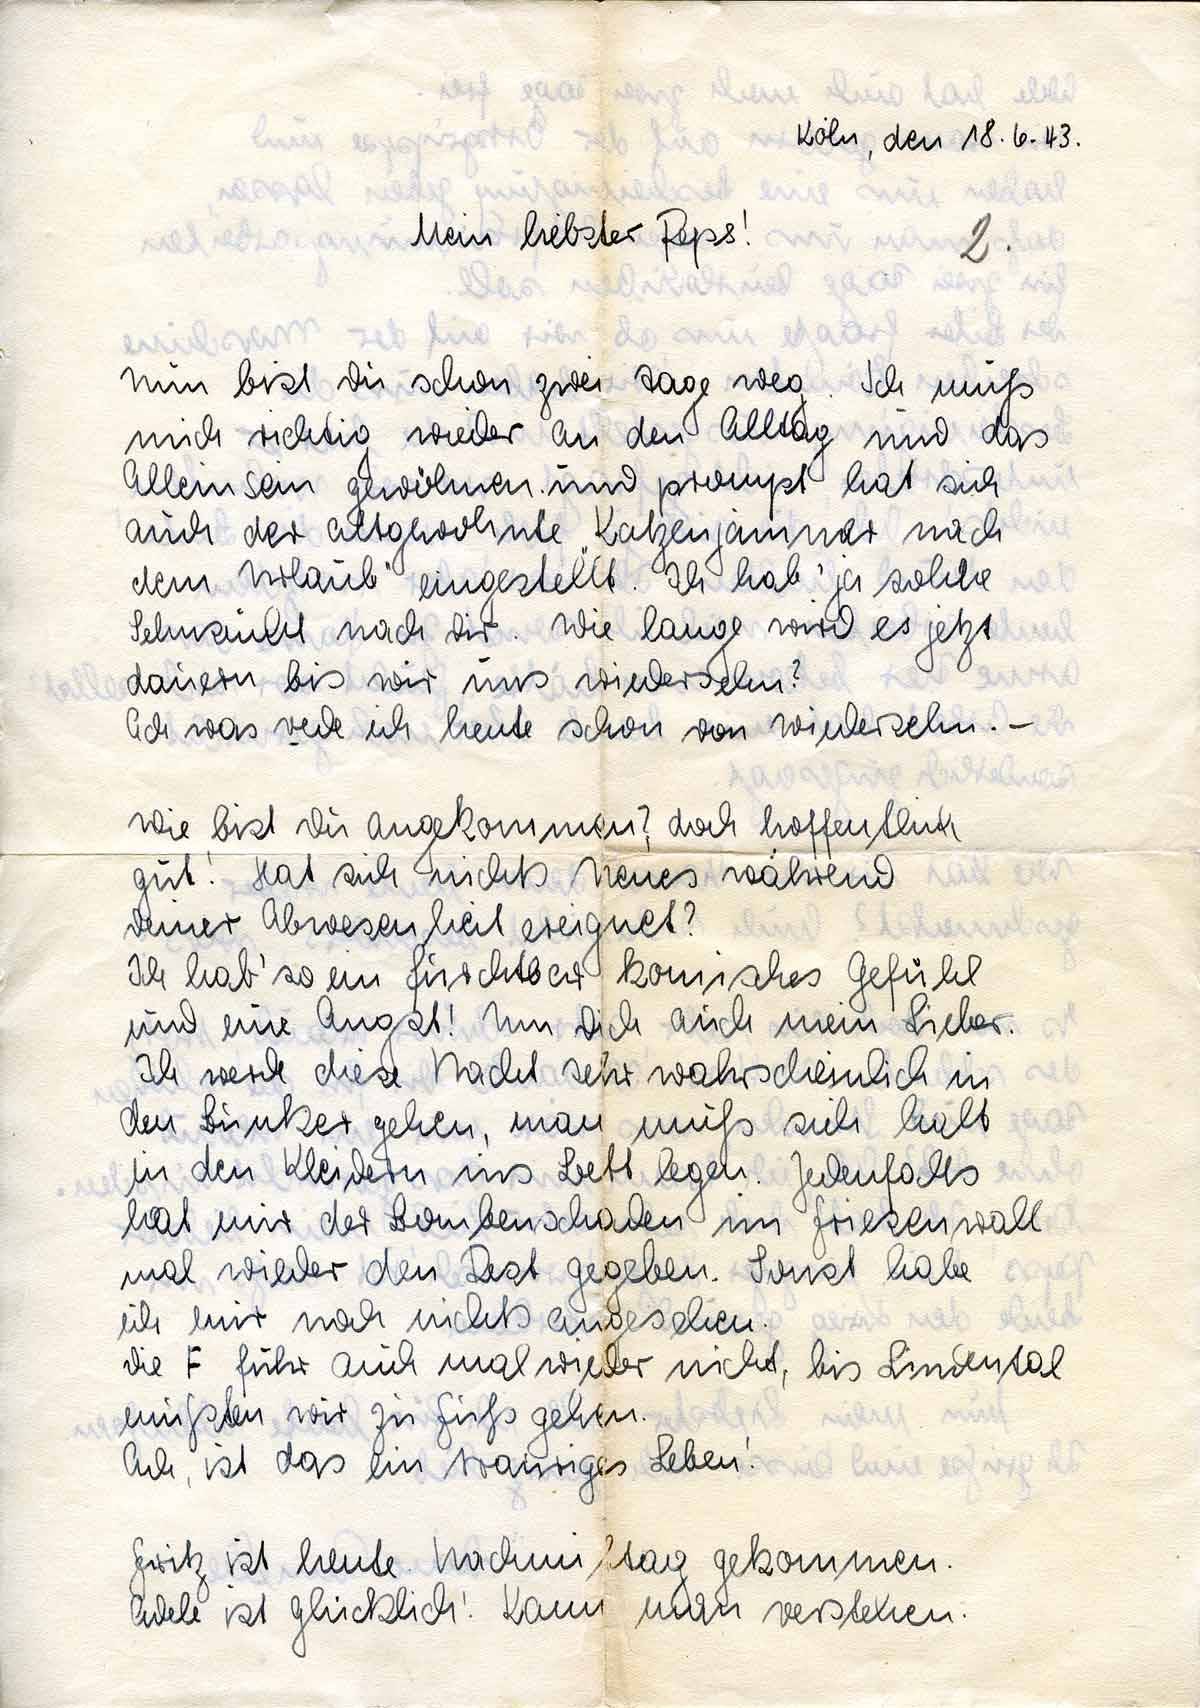 Köln, den 18.6.43.
Mein liebster Peps!
2.
Nun bist du schon zwei Tage weg. Ich muß
mich richtig wieder an den Alltag und das
Alleinsein gewöhnen und prompt hat sich
auch der altgewohnte „Katzenjammer nach
dem Urlaub" eingestellt. Ich hab' ja solche
Sehnsucht nach dir. Wie lange wird es jetzt
dauern bis wir uns wiedersehn?
Ach was rede ich heute schon von Wiedersehn. –
Wie bist du angekommen? doch hoffentlich
gut! Hat sich nichts Neues während
deiner Abwesenheit ereignet?
Ich hab' so ein furchtbar komisches Gefühl
und eine Angst! Um dich auch mein Lieber.
Ich werde diese Nacht sehr wahrscheinlich in
den Bunker gehen, man muß sich halt
in den Kleidern ins Bett legen. Jedenfalls
hat mir der Bombenschaden im Friesenwall
mal wieder den Rest gegeben. Sonst habe
ich mir noch nichts angesehen.
Die F fuhr auch mal wieder nicht, bis Lindental
mußten wir zu Fuß gehen.
Ach, ist das ein trauriges Leben!
Fritz ist heute Nachmittag gekommen.
Adele ist glücklich! Kann man verstehen.